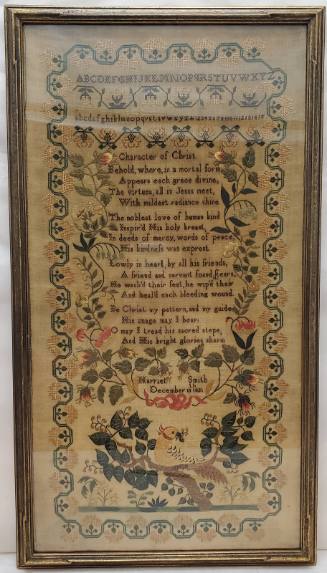 ABCDEFGHIJKLMNOPQRSTUVWXYZ
abcdefghiklmnopqrstuvwxyz
Character of Christ
Behold, where, in a mortal form
Appears each grace divine,
The virtues, all in Jesus meet,
With mildest radiance shine
The noblest love of human kind
Inspir'd His holy breast,
In deeds of mercy, words of peace
His kindness was exprest
Lowly in heart, by all his friends,
A friend and servant found,
He wash'd their feet, he wip'd their
And heal'd each bleeding wound.
Be Christ my pattern, and my guide
His image may I bear;
O may I tread his sacred steps,
And His bright glories share
Harriet Smith
December